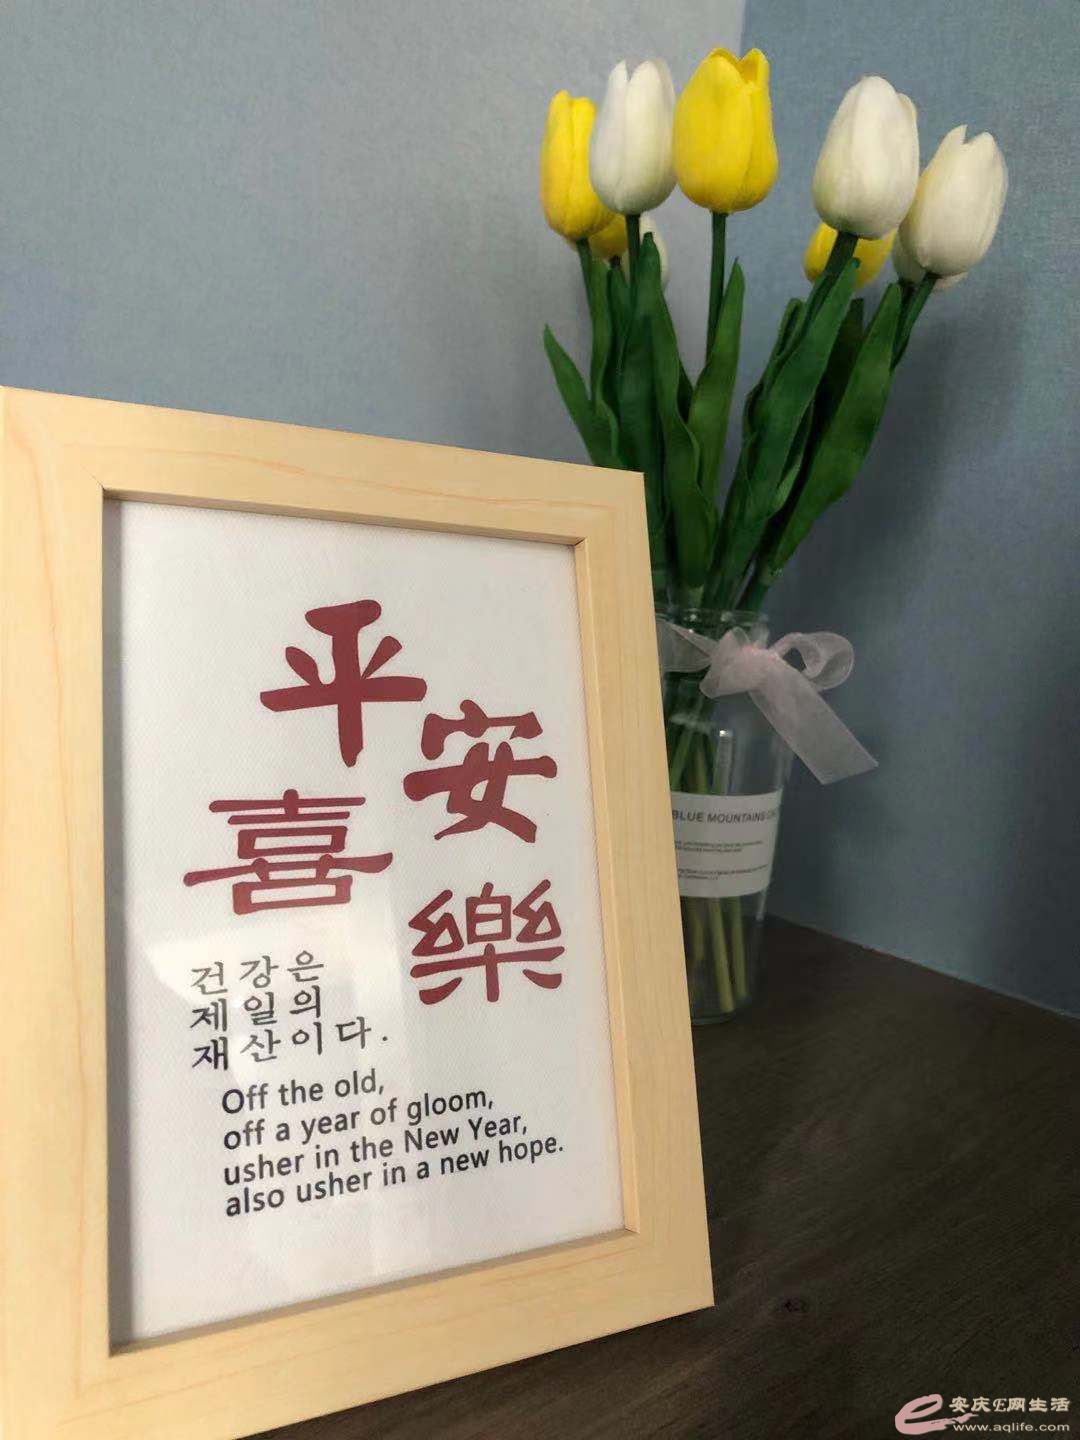 平安
喜樂
건강은
제일의
재산이다.
Off the old,
off a year of gloom,
usher in the New Year,
also usher in a new hope.
BLUE MOUNTAINS
安庆E网生活
www.aqlife.com